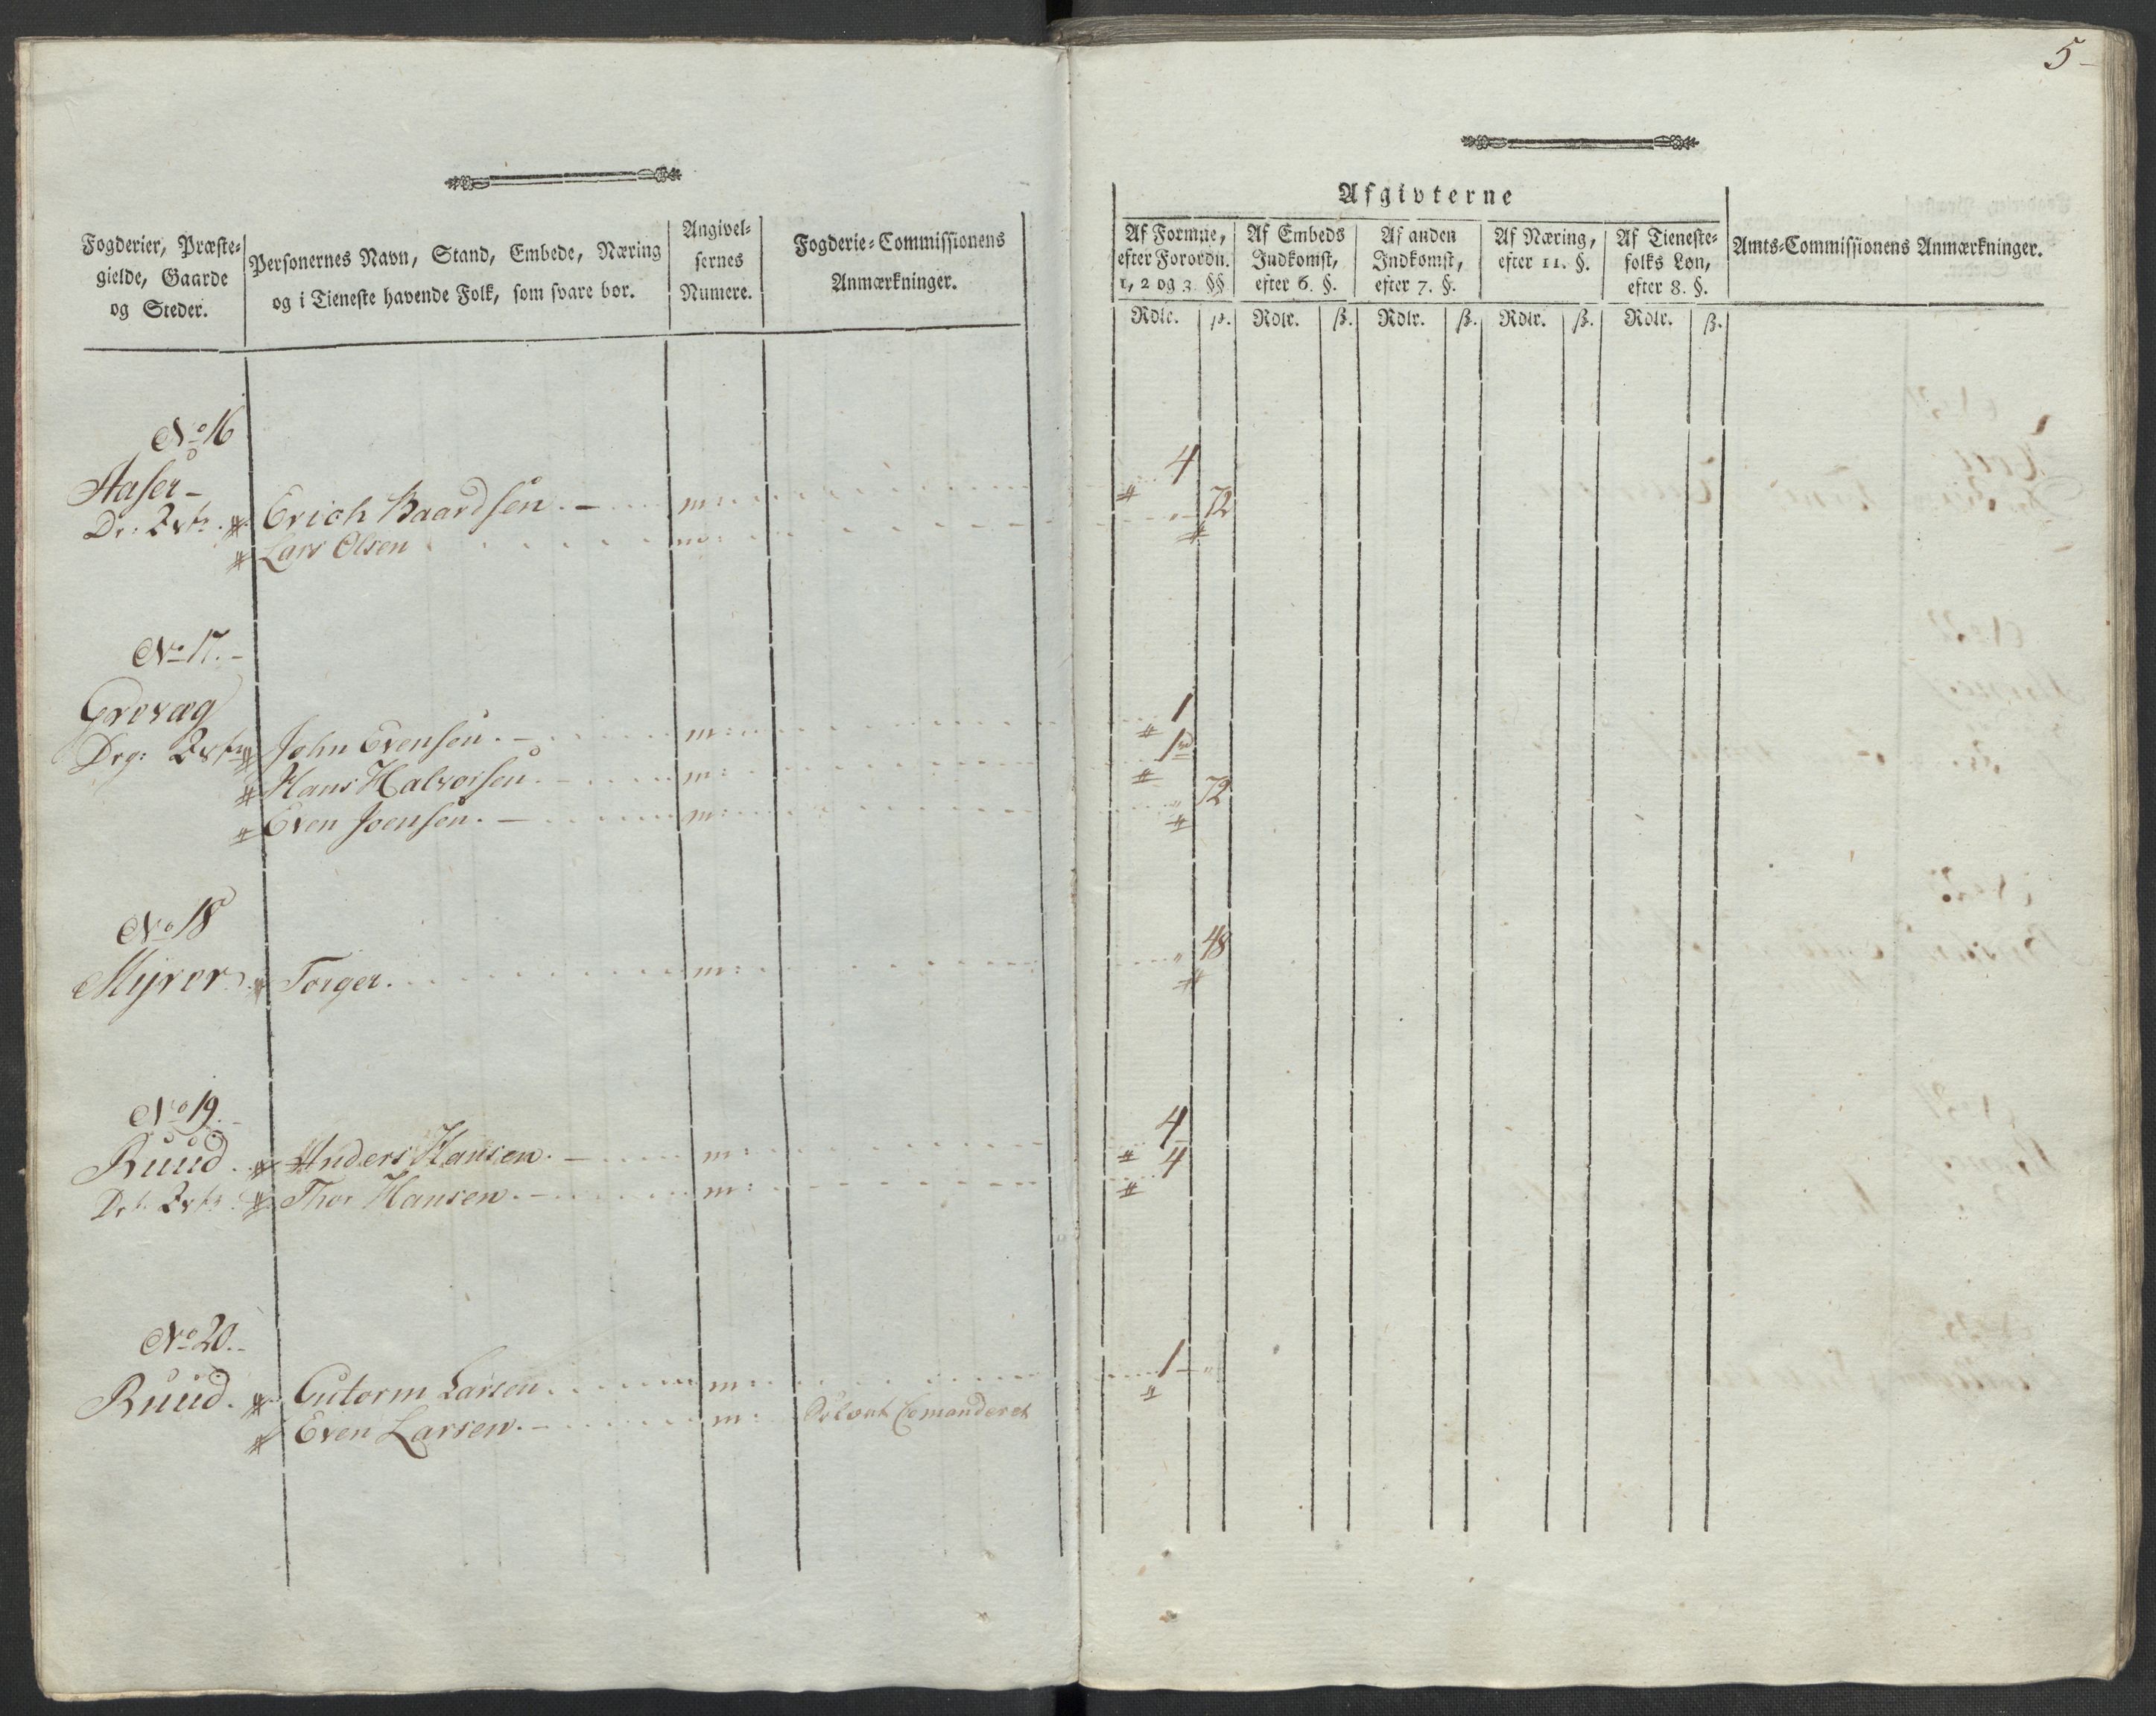 5-
Fogderier, Præste-
gielde, Gaarde
og Steder.
Personernes Navn, Stand, Embede, Næring
og i Tieneste havende Folk, som svare bør.
Angivel-
sernes
Numere.
Fogderie-Commissionens
Anmærkninger.
Afgivterne
Af Formue,
efter Forordn.
1, 2 og 3. §§
Af Embeds
Indkomst,
efter 6. §.
Af anden
Indkomst,
efter 7. §.
Af Næring,
efter 11. §.
Af Tieneste-
folks Løn,
efter 8. §.
Amts-Commissionens Anmærkninger.
Rdlr. ß. Rdlr. ß. Rdlr. ß. Rdlr. ß. Rdlr. ß.
No 16
Aaser -
Erich Baardsen. - m: 4
Lars Olsen m: 72
No 17. -
Grovag
John Evensen. - m: 1
Hans Halvorsen. - m: 1
Even Joensen. - m: " 72
No 18
Myrer. Torger. m: " 48
No 19. -
Ruud. Anders Hansen. - m: 4
Thor Hansen. - m: 4
No 20. -
Ruud. Gutorm Larsen. m: 1 - "
Even Larsen. - m: Comanderet